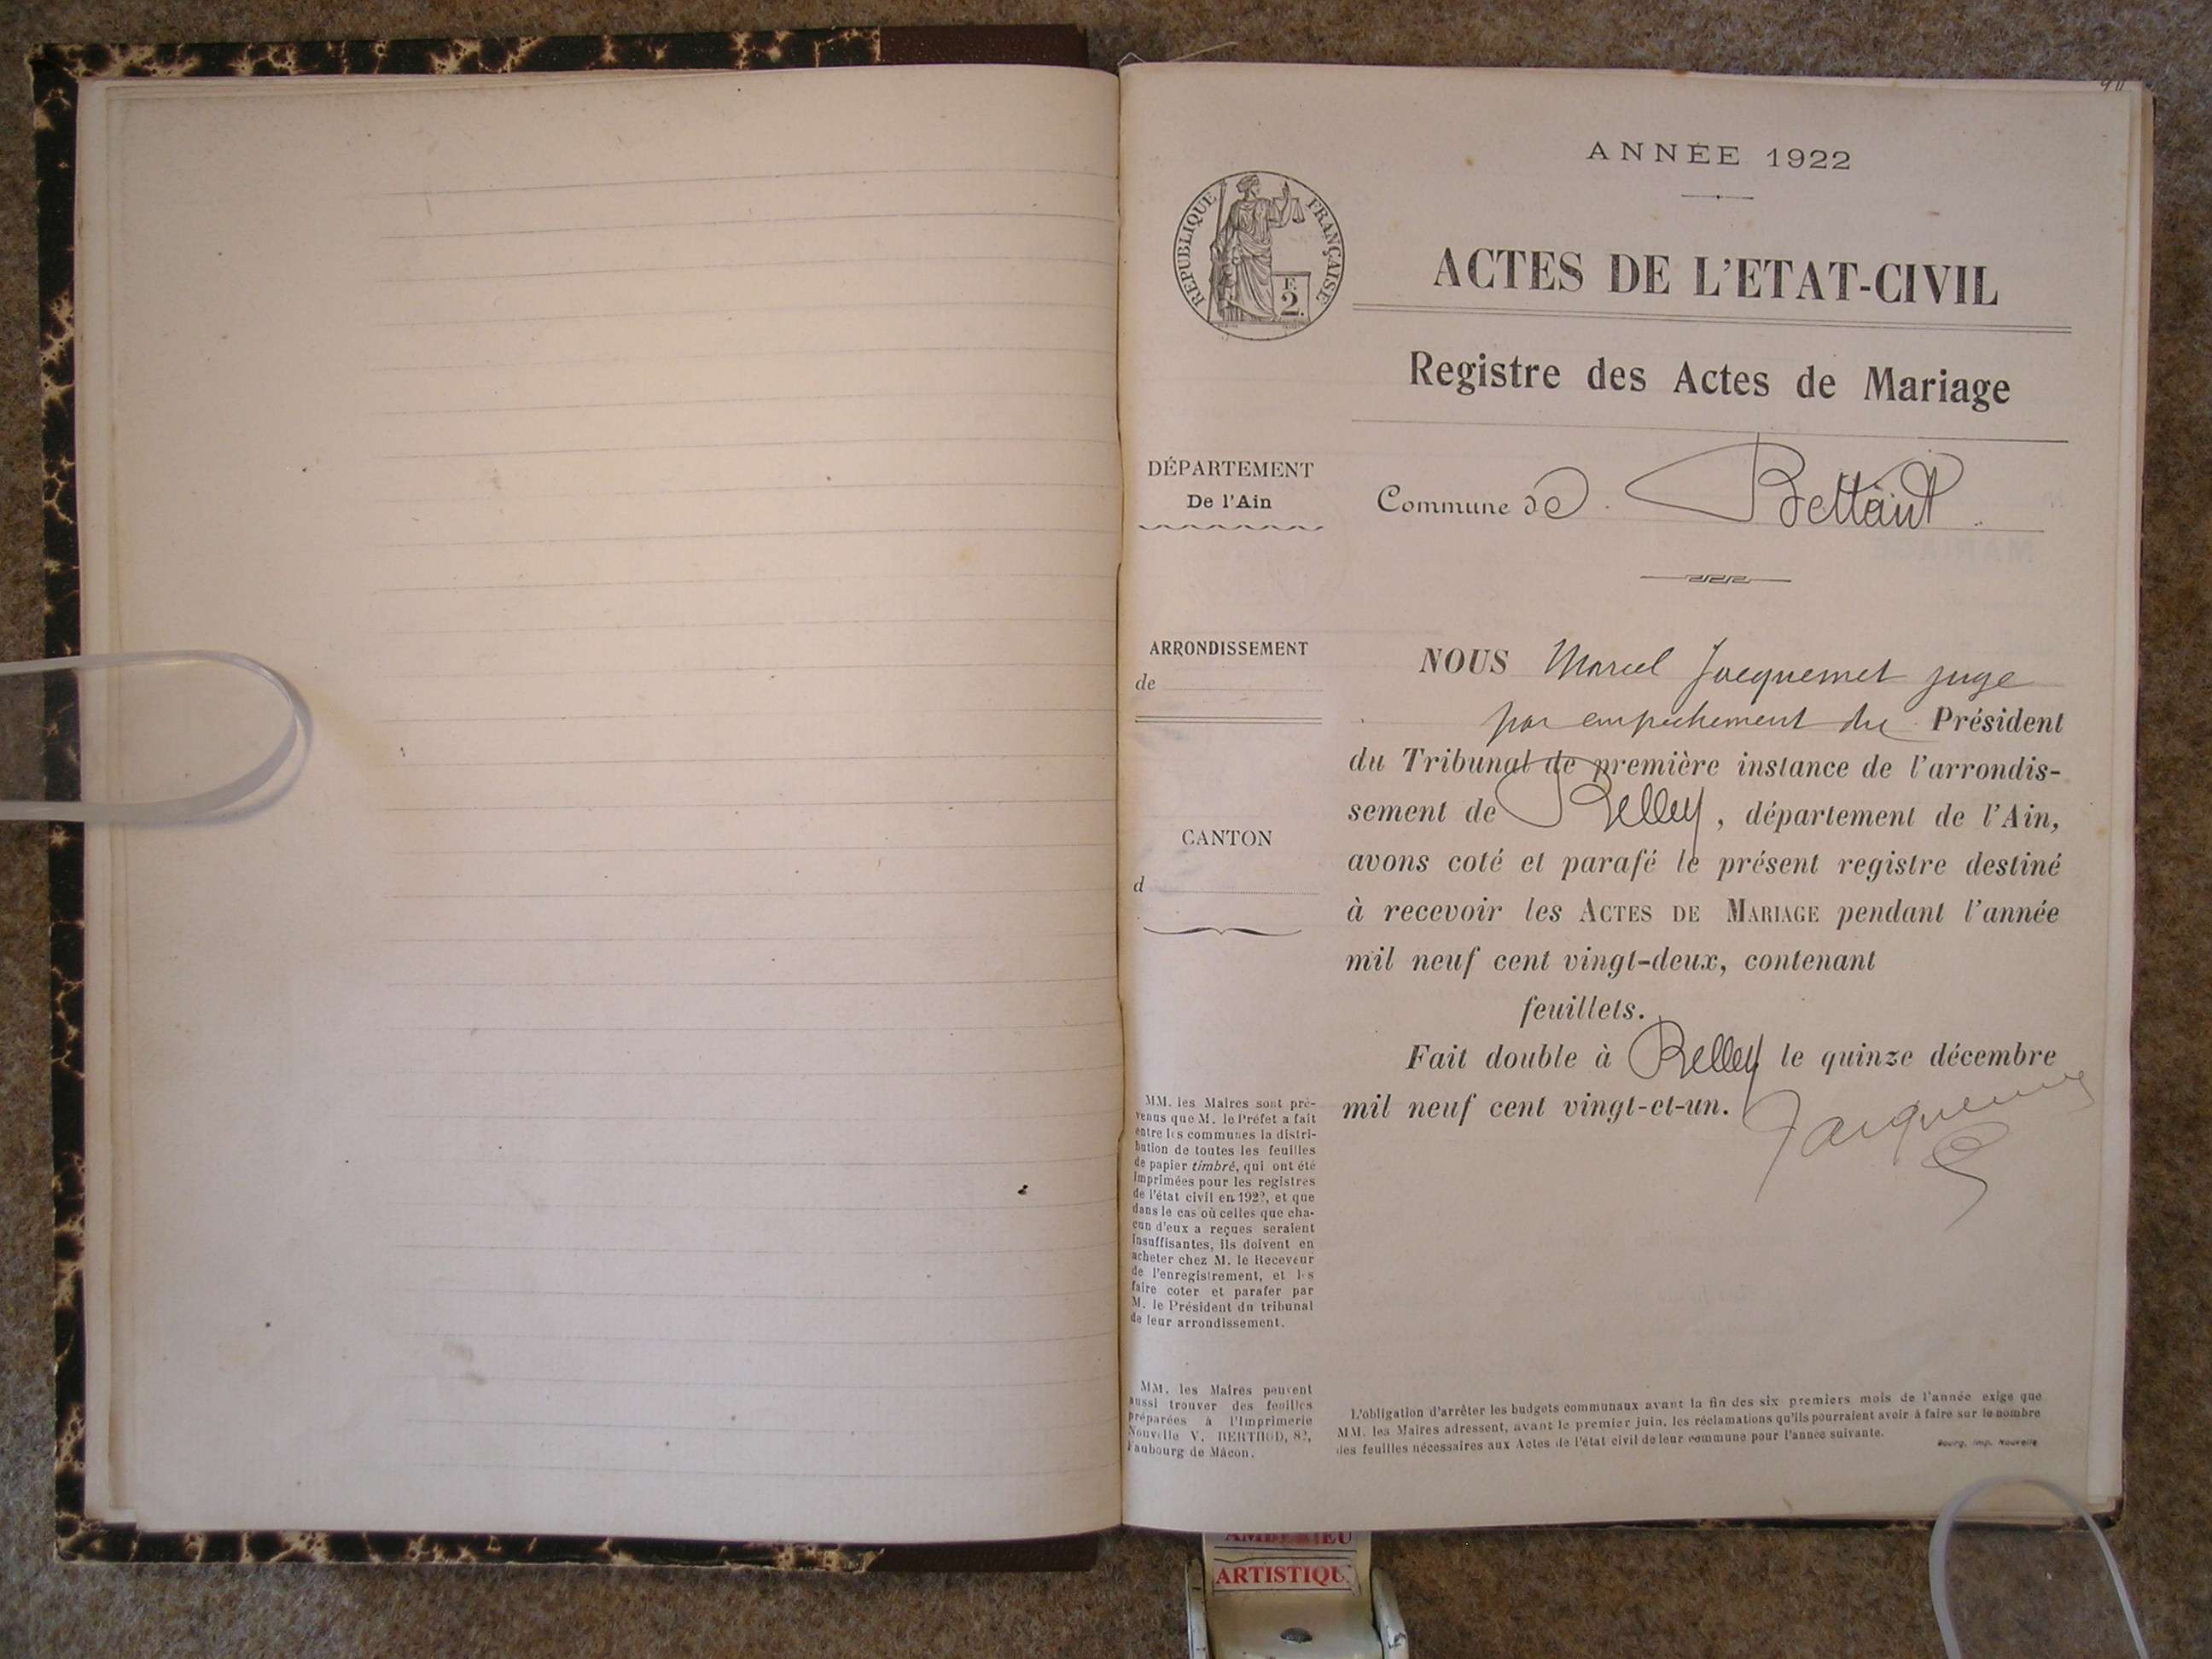 ANNÉE 1922
RÉPUBLIQUE FRANÇAISE
F.
2.
ACTES DE L'ETAT-CIVIL
Registre des Actes de Mariage
DÉPARTEMENT
De l'Ain
Commune de Bettant
ARRONDISSEMENT
de
CANTON
d
NOUS Marcel Jacquemet juge
par empêchement du Président
du Tribunal de première instance de l'arrondis-
sement de Belley, département de l'Ain,
avons coté et parafé le présent registre destiné
à recevoir les ACTES DE MARIAGE pendant l'année
mil neuf cent vingt-deux, contenant
feuillets.
Fait double à Belley le quinze décembre
mil neuf cent vingt-et-un.
Jacquemet
MM. les Maires sont pré-
venus que M. le Préfet a fait
entre les communes la distri-
bution de toutes les feuilles
de papier timbré, qui ont été
imprimées pour les registres
de l'état civil en 1922, et que
dans le cas où celles que cha-
cun d'eux a reçues seraient
insuffisantes, ils doivent en
acheter chez M. le Receveur
de l'enregistrement, et les
faire coter et parafer par
M. le Président du tribunal
de leur arrondissement.
MM. les Maires peuvent
aussi trouver des feuilles
préparées à l'Imprimerie
Nouvelle V. BERTHOD, 82,
Faubourg de Mâcon.
L'obligation d'arrêter les budgets communaux avant la fin des six premiers mois de l'année exige que
MM. les Maires adressent, avant le premier juin, les réclamations qu'ils pourraient avoir à faire sur le nombre
des feuilles nécessaires aux Actes de l'état civil de leur commune pour l'année suivante.
Bourg, Imp. Nouvelle
ARTISTIQU